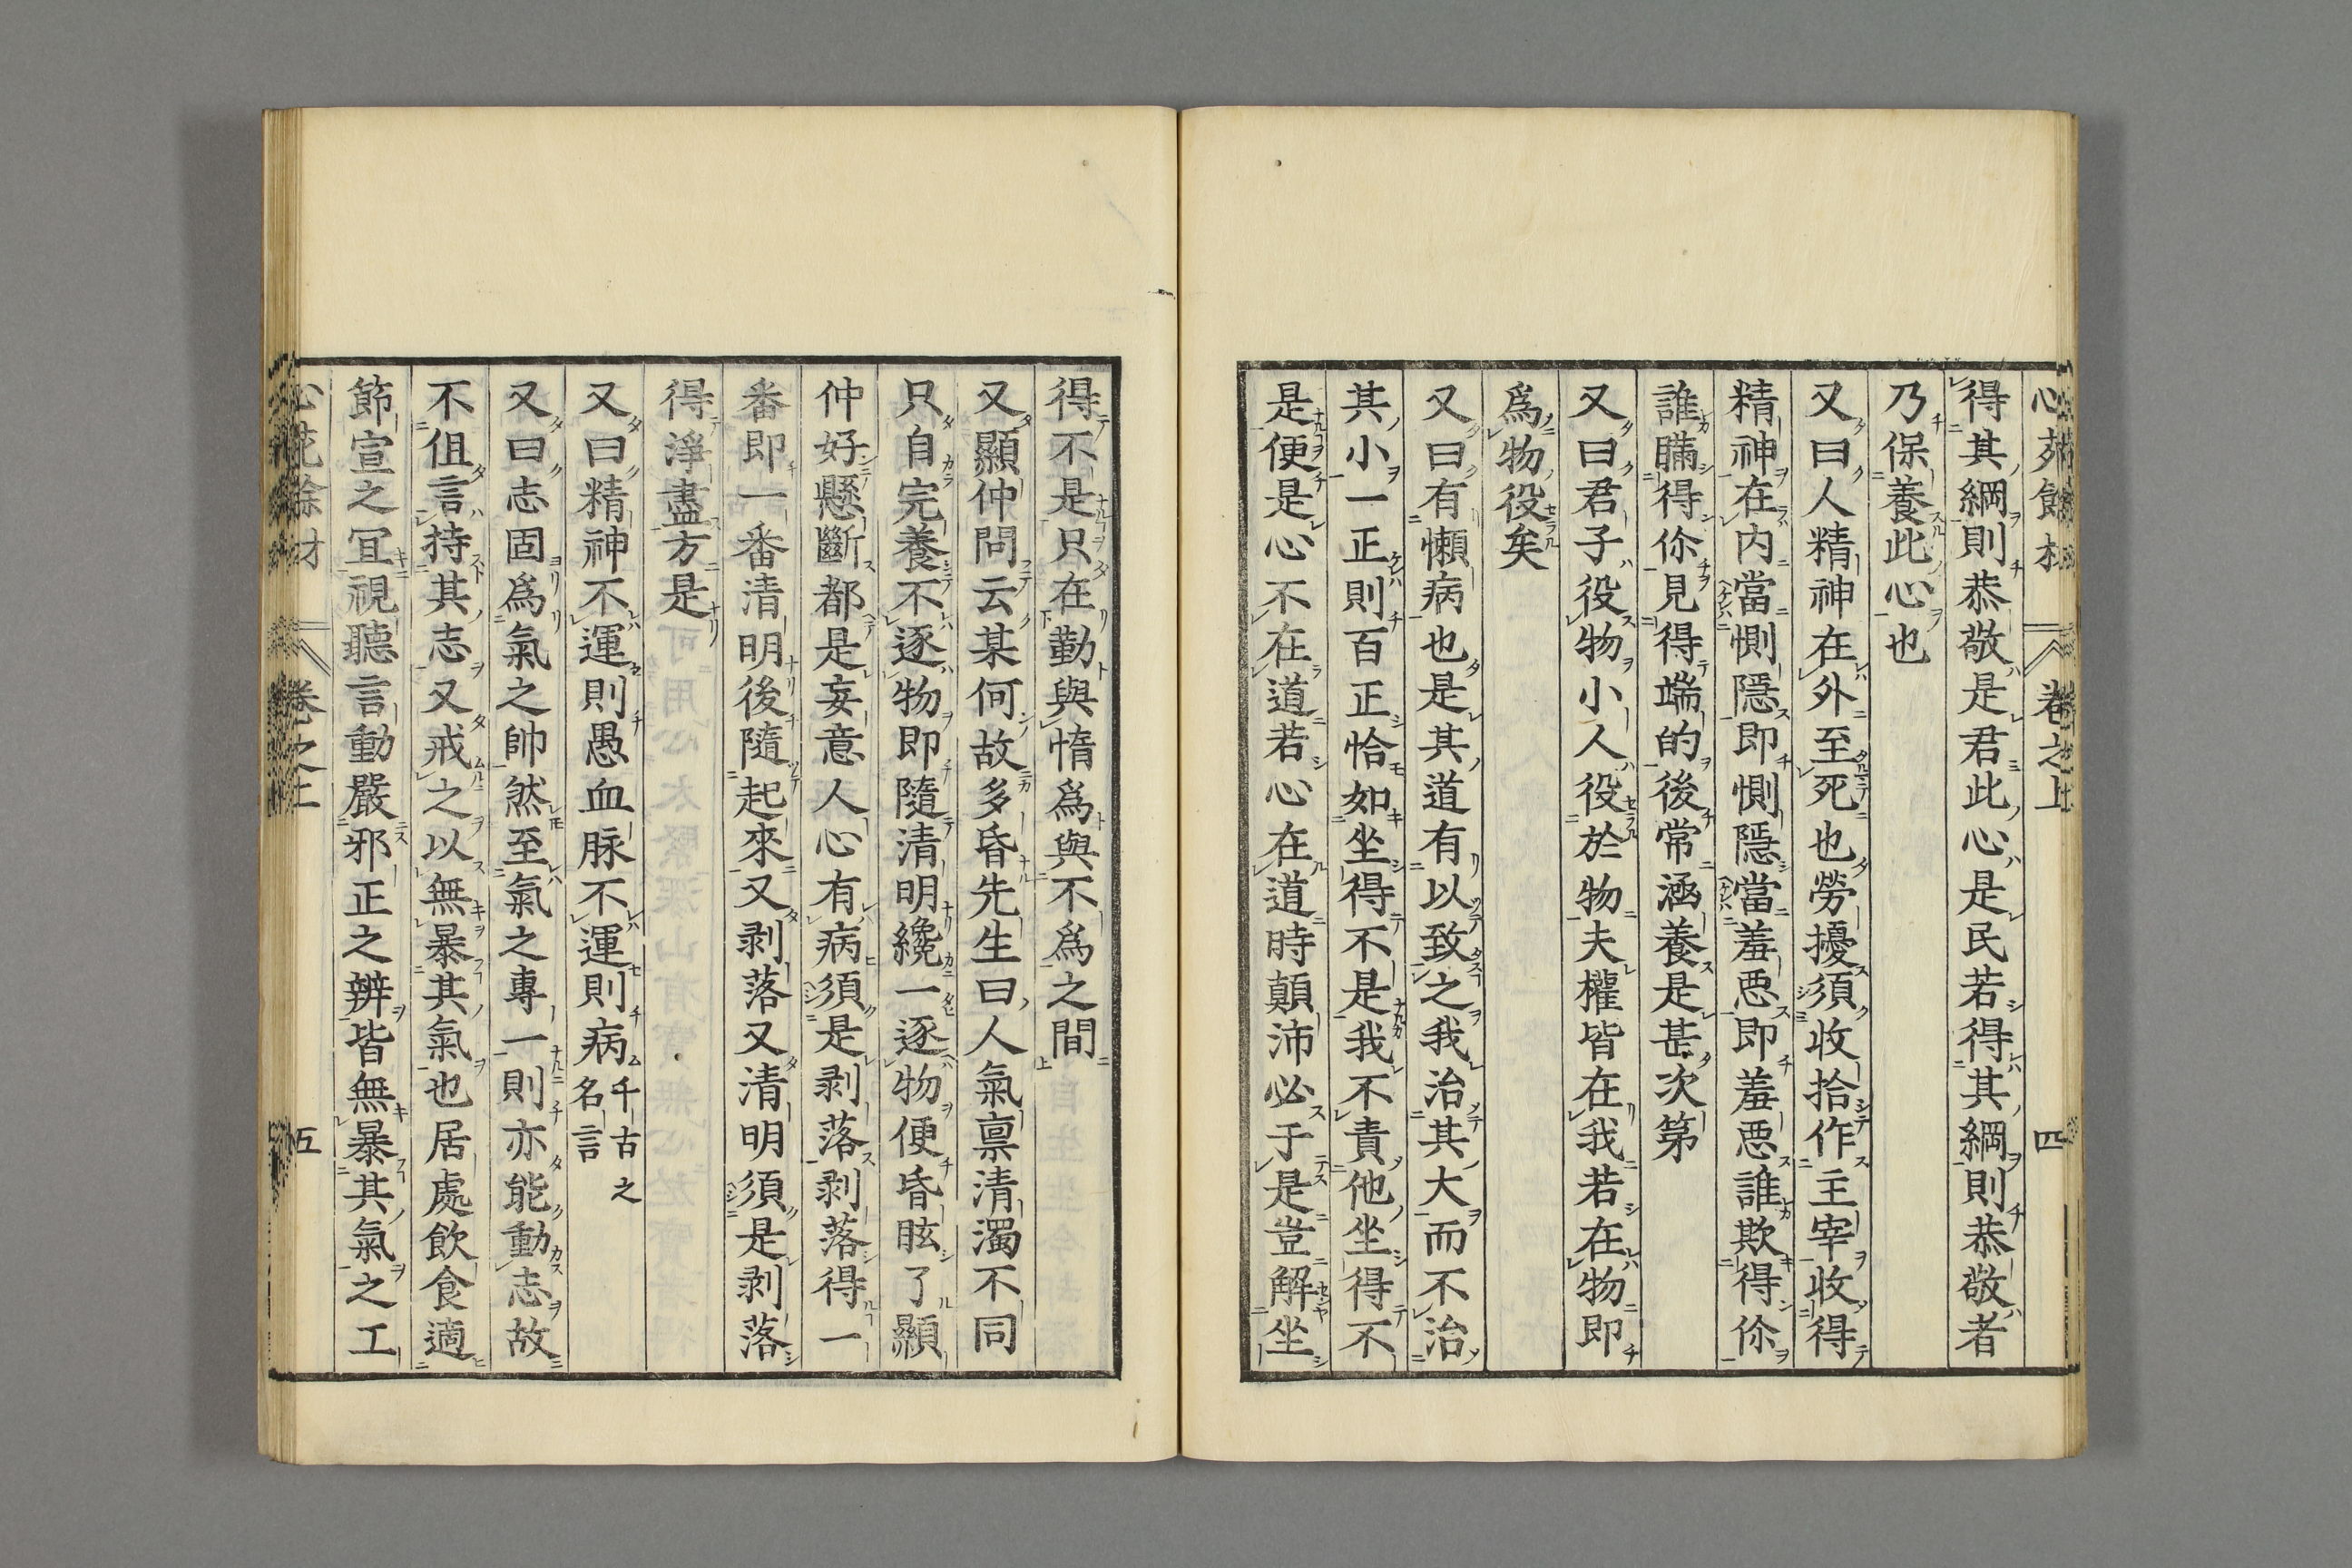 心
卷之上
四
得其綱則恭敬是君此心是民若得其綱則恭敬者
乃保養此心也
又曰人精神在外至死也勞擾須收拾作主宰收得
精神在内當惻隱即惻隱當羞惡即羞惡誰欺得你
誰瞞得你見得端的後常涵養是甚次第
又曰君子役物小人役於物夫權皆在我若在物即
爲物役矣
又曰有懶病也是其道有以致之我治其大而不治
其小一正則百正恰如坐得不是我不責他坐得不
是便是心不在道若心在道時顛沛必于是豈解坐
得不是只在勤與惰爲與不爲之間
又顯仲問云某何故多昏先生曰人氣禀清濁不同
只自完養不逐物即隨清明纔一逐物便昏眩了顯
仲好懸斷都是妄意人心有病須是剥落剥落得一
番即一番清明後隨起來又剥落又清明須是剥落
得淨盡方是
又曰精神不運則愚血脉不運則病千古之名言
又曰志固爲氣之帥然至氣之專一則亦能動志故
不伹言持其志又戒之以無暴其氣也居處飲食適
節宣之冝視聽言動嚴邪正之辨皆無暴其氣之工
卷之上
五